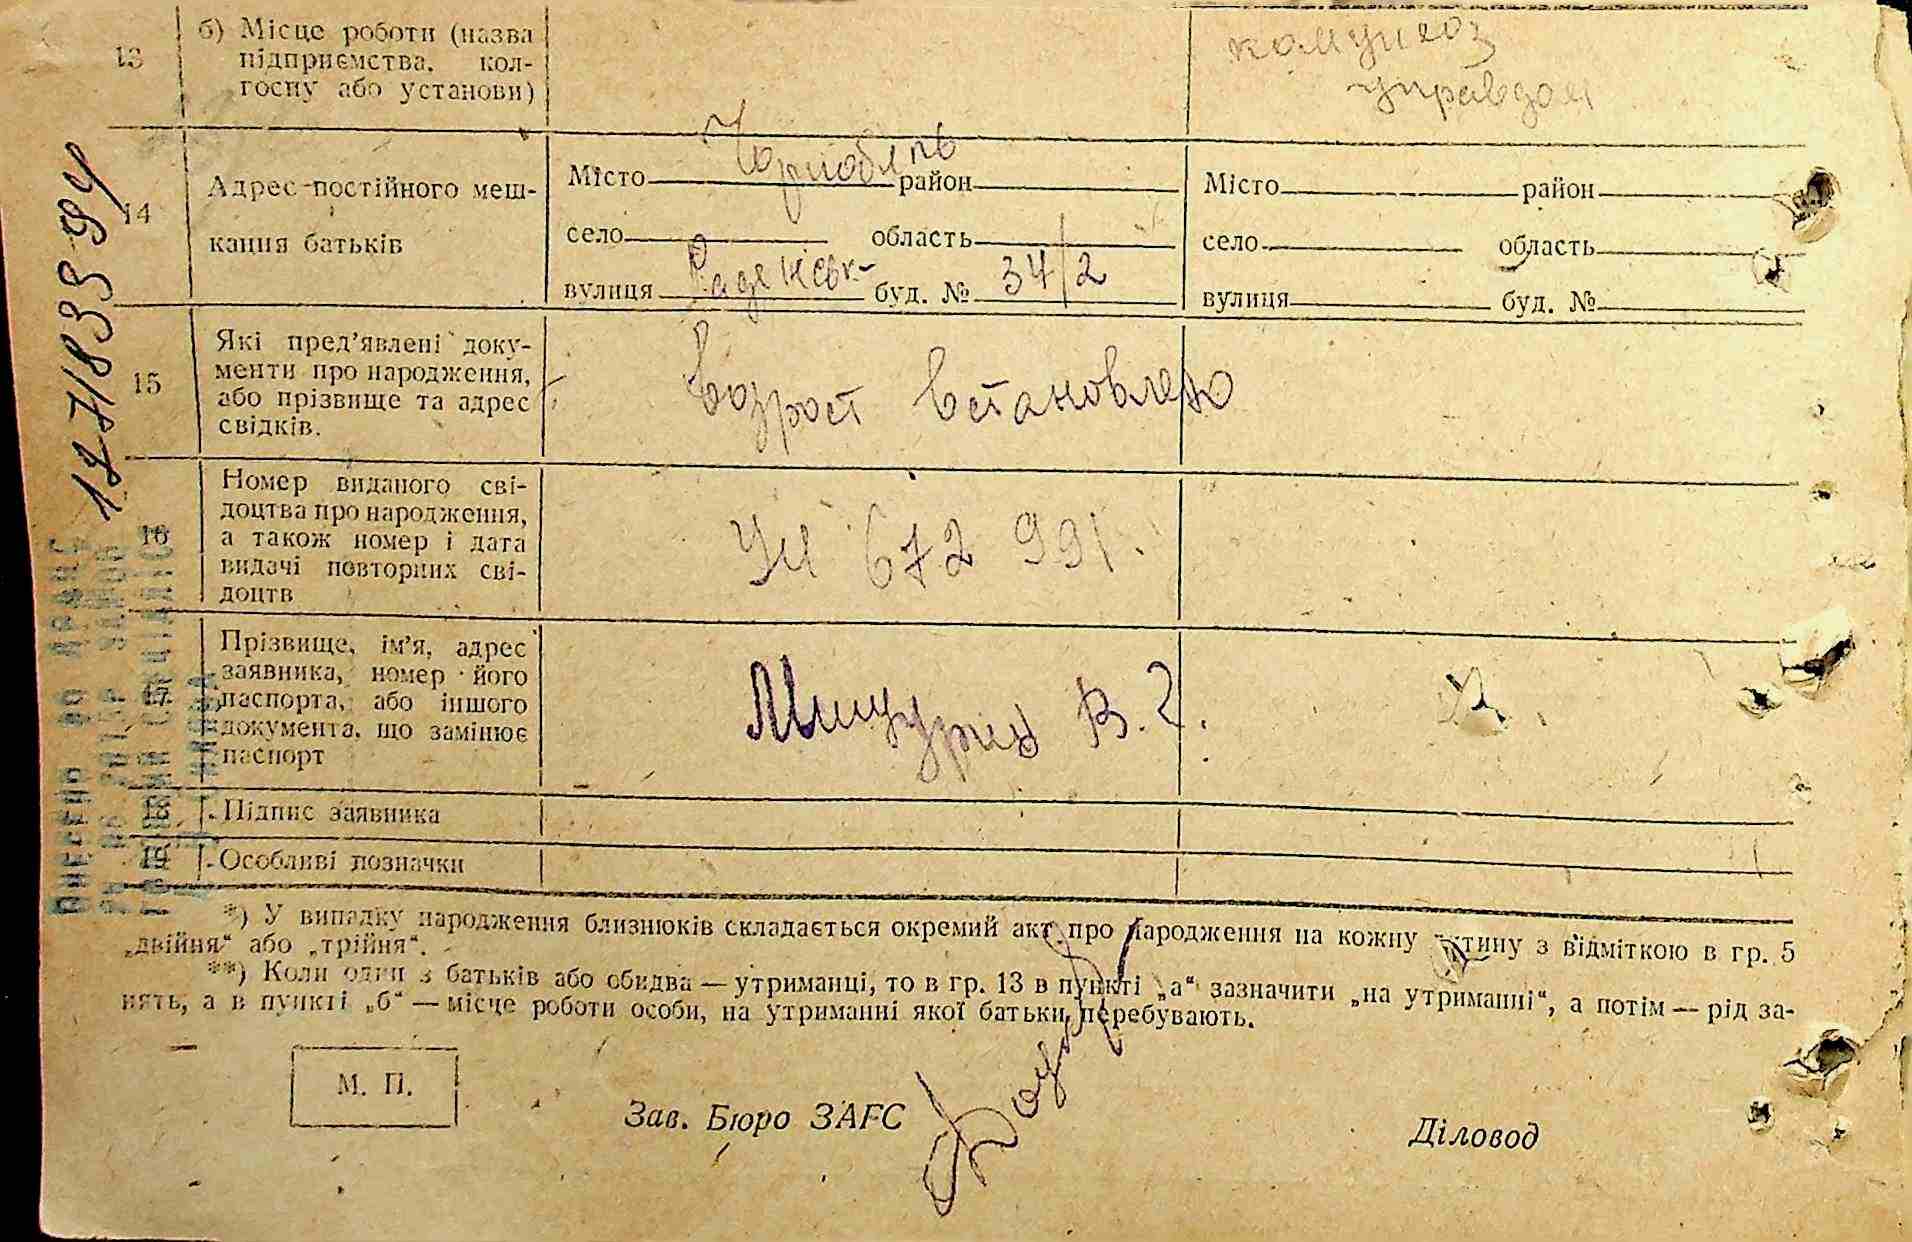 13
б) Місце роботи (назва
підприємства, кол-
госпу або установи)
комунгоз
управдом
14
Адрес постійного меш-
кання батьків
Місто Чорнобль район
село область
вулиця буд. № 34/2
Місто район
село область
вулиця буд. №
15
Які пред’явлені доку-
менти про народження,
або прізвище та адрес
свідків.
Возрост встановлено
16
Номер виданого сві-
доцтва про народження,
а також номер і дата
видачі повторних сві-
доцтв
УЧ 672 991.
17
Прізвище, ім’я, адрес
заявника, номер його
паспорта, або іншого
документа, що замінює
паспорт
В. Г.
18
Підпис заявника
19
Особливі позначки
*) У випадку народження близнюків складається окремий акт про народження на кожну дитину з відміткою в гр. 5
„двійня“ або „трійня“.
**) Коли один з батьків або обидва — утриманці, то в гр. 13 в пункті „а“ зазначити „на утриманні“, а потім — рід за-
нять, а в пункті „б“ — місце роботи особи, на утриманні якої батьки перебувають.
М. П.
Зав. Бюро ЗАГС
Діловод